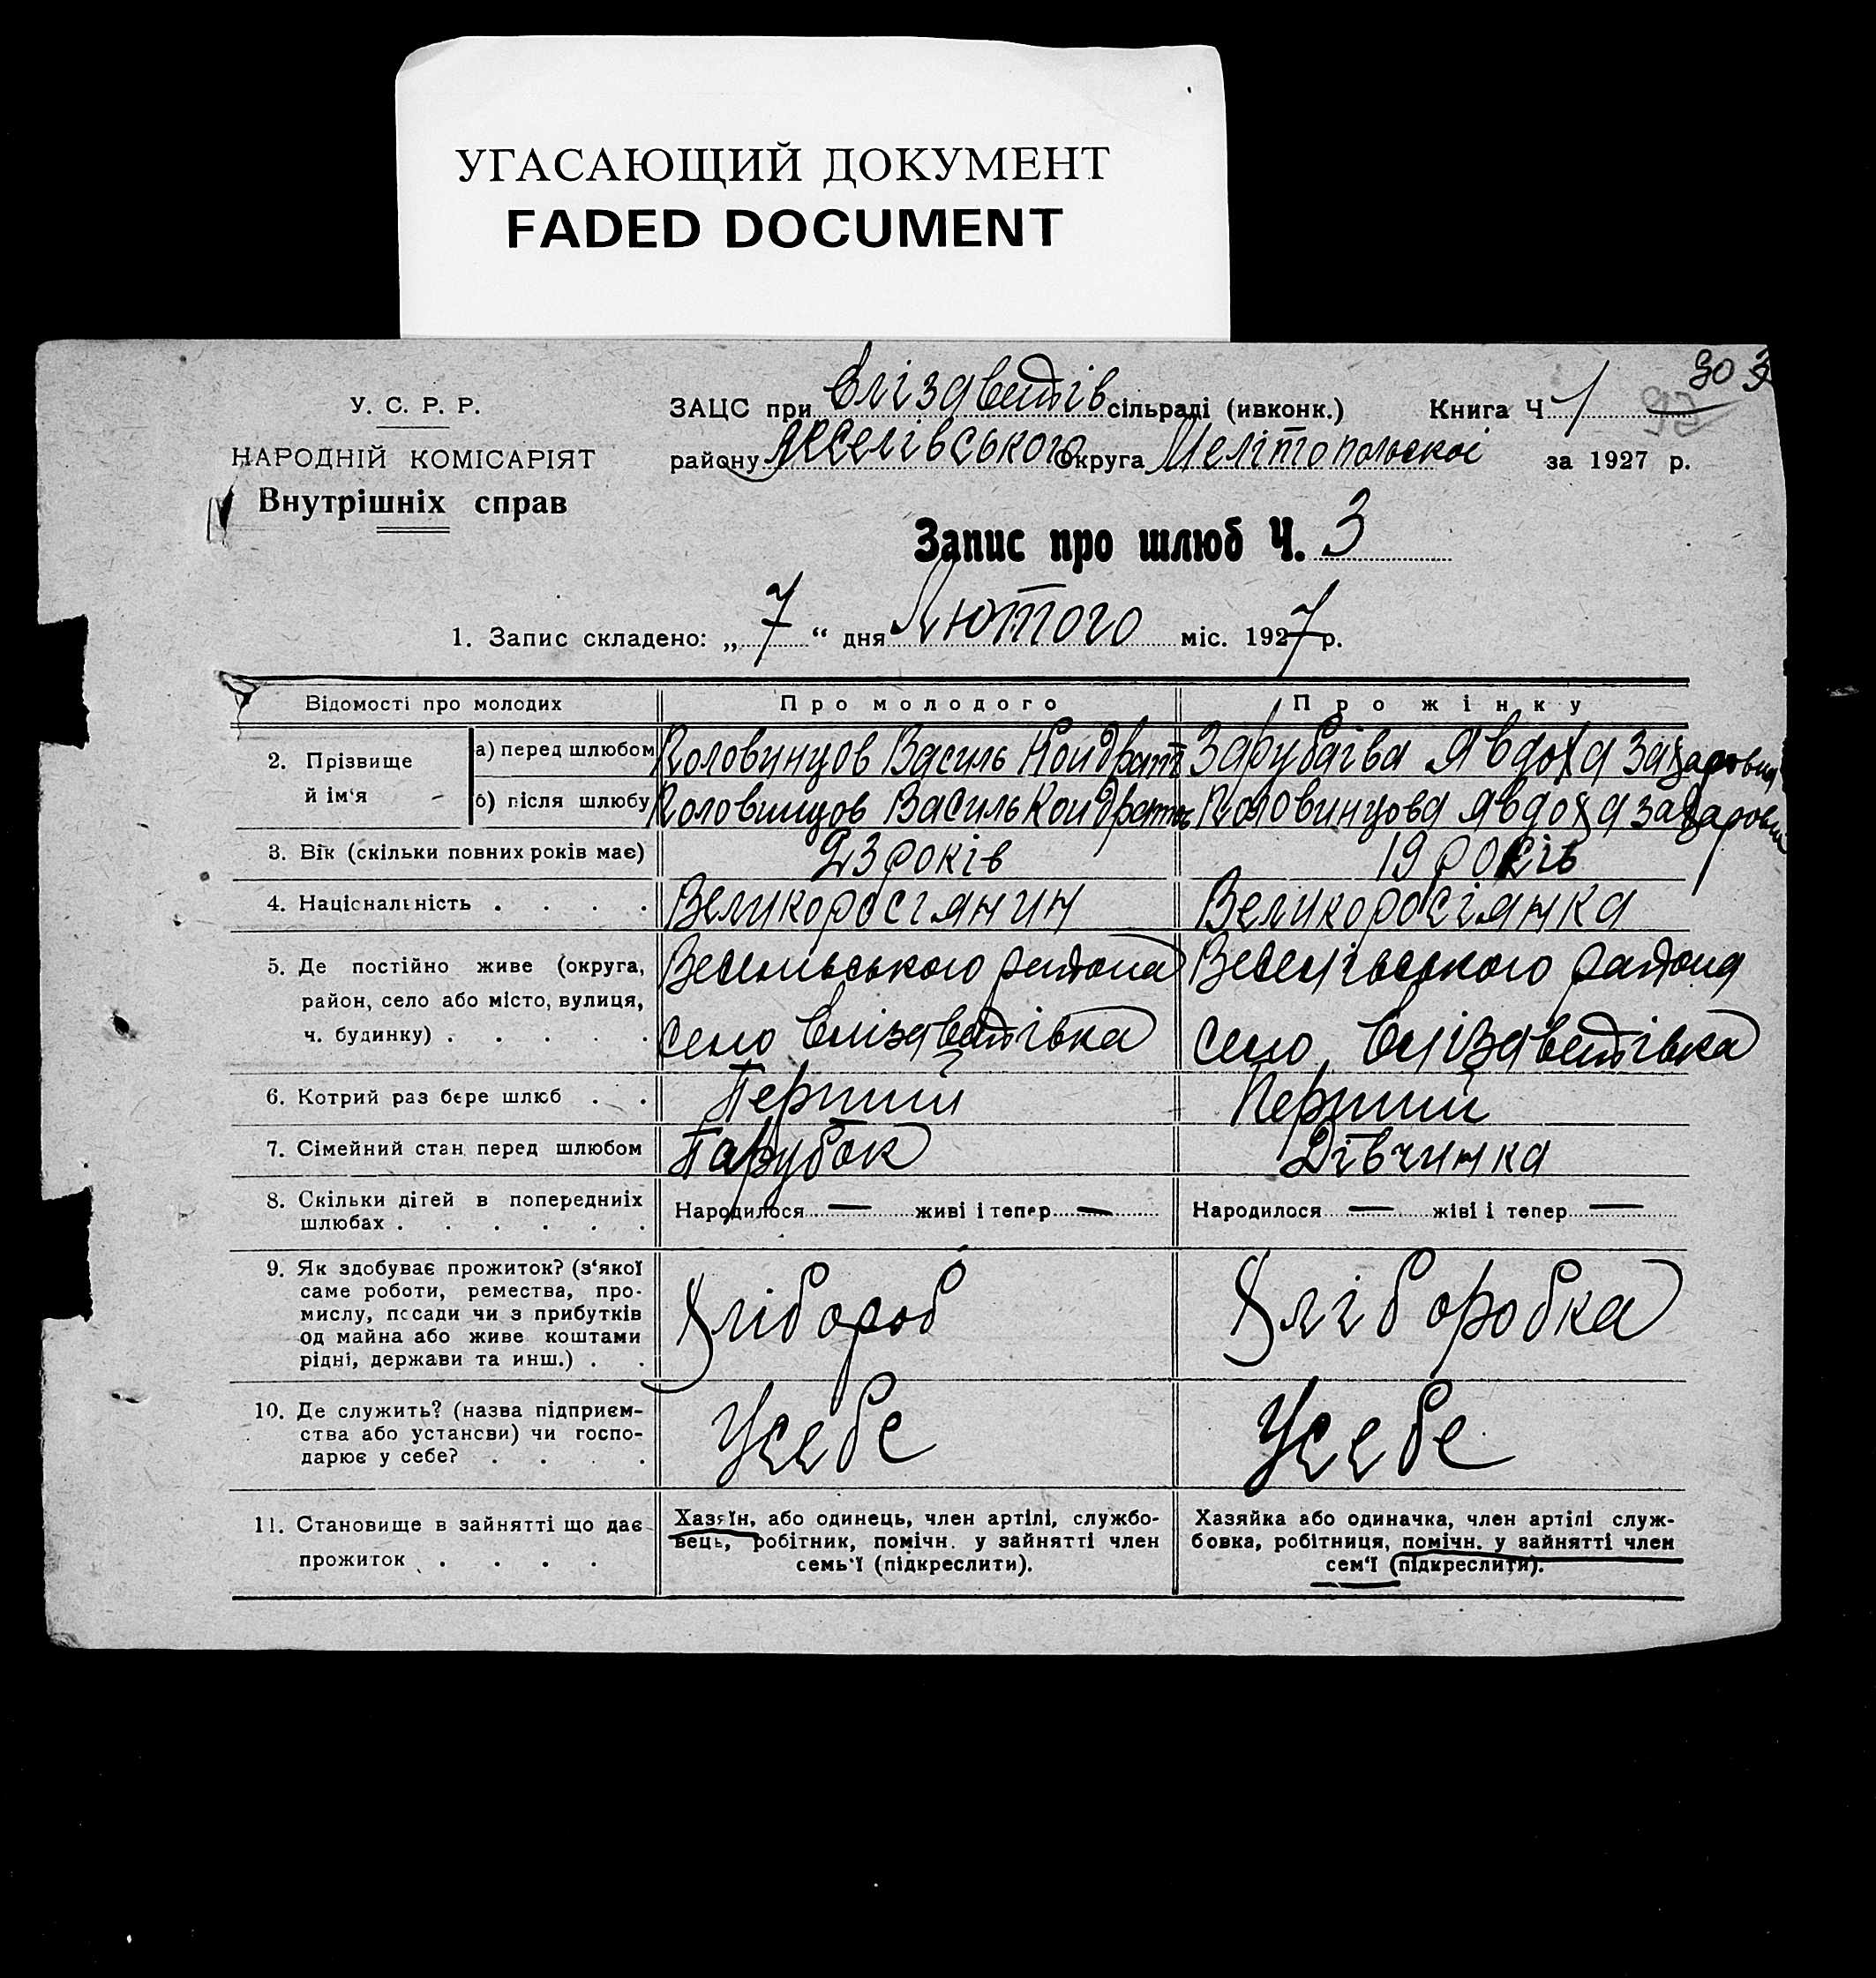 УГАСАЮЩИЙ ДОКУМЕНТ
FADED DOCUMENT
У. С. Р. Р.
НАРОДНІЙ КОМІСАРІЯТ
Внутрішніх справ
ЗАЦС при Єлізаветів сільраді (ивконк.) Книга Ч 1
30
району округа Мелітопольскоі за 1927 р.
Запис про шлюб Ч. 3
1. Запис складено: „ 7 “ дня Лютого міс. 1927 р.
Відомості про молодих Про молодого Про жінку
2. Прізвище й ім‘я
а) перед шлюбом Половинцов Василь Кондрат Зарубаєва Явдоха Захаровна
б) після шлюбу Половинцов Василь Кондрат Половинцова Явдоха Захаровна
3. Вік (скільки повних років має) 23 років 19 років
4. Національність . . . . Великоросіянин Великоросіянка
5. Де постійно живе (округа, район, село або місто, вулиця, ч. будинку) . . . . .
Веселівського района
село Єлізаветівка
Веселівського района
село Єлізаветівка
6. Котрий раз бере шлюб . . Перший Перший
7. Сімейний стан перед шлюбом Парубок Дівчинка
8. Скільки дітей в попередніх шлюбах . . . . . . Народилося — живі і тепер — Народилося — жіві і тепер —
9. Як здобуває прожиток? (з‘якої
саме роботи, ремества, про-
мислу, посади чи з прибутків
од майна або живе коштами
рідні, держави та инш.) . .
Хлібороб Хліборобка
10. Де служить? (назва підприєм-
ства або установи) чи госпо-
дарює у себе? . . . .
Усебе Усебе
11. Становище в зайнятті що дає
прожиток . . . .
Хазяїн, або одинець, член артілі, службо-
вець, робітник, помічн. у зайнятті член
семь‘ї (підкреслити).
Хазяйка або одиначка, член артілі служ-
бовка, робітниця, помічн. у зайнятті член
сем‘ї (підкреслити).